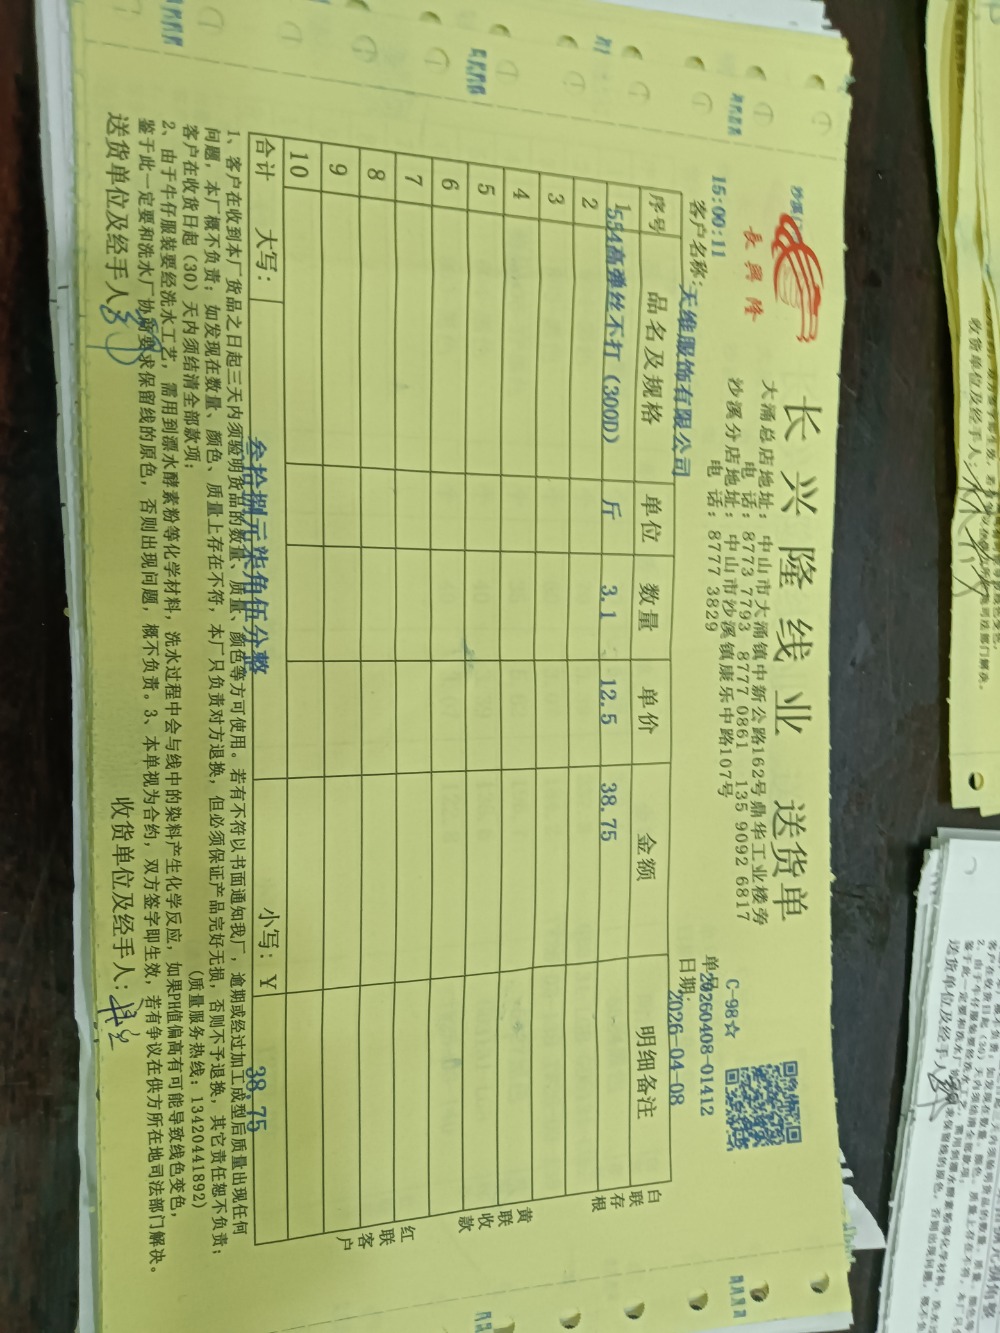 長興隆
长兴隆线业 送货单
大涌总店地址：中山市大涌镇中新公路162号鼎华工业楼旁
电 话：8773 7793 8777 0861 135 9092 6817
沙溪分店地址：中山市沙溪镇康乐中路107号
电 话：8777 3829
C-98☆
15:00:11
单号：20260408-01412
客户名称：天维服饰有限公司
日期：2026-04-08
序号 品名及规格 单位 数量 单价 金额 明细备注
1 554高弹丝不打(300D) 斤 3.1 12.5 38.75
2
3
4
5
6
7
8
9
10
合计 大写：叁拾捌元柒角伍分整 小写：Y 38.75
白联存根
黄联收款
红联客户
1、客户在收到本厂货品之日起三天内须验明货品的数量、质量、颜色等方可使用。若有不符以书面通知我厂，逾期或经过加工成型后质量出现任何
问题，本厂概不负责；如发现在数量、颜色、质量上存在不符，本厂只负责对方退换，但必须保证产品完好无损，否则不予退换，其它责任恕不负责；
客户在收货日起（30）天内须结清全部款项； (质量服务热线：13420441892)
2、由于牛仔服装要经洗水工艺，需用到漂水酵素粉等化学材料，洗水过程中会与线中的染料产生化学反应，如果PH值偏高有可能导致线色变色，
鉴于此一定要和洗水厂协商要求保留线的原色，否则出现问题，概不负责。3、本单视为合约，双方签字即生效，若有争议在供方所在地司法部门解决。
送货单位及经手人：
收货单位及经手人：
收货单位及经手人：
送货单位及经手人